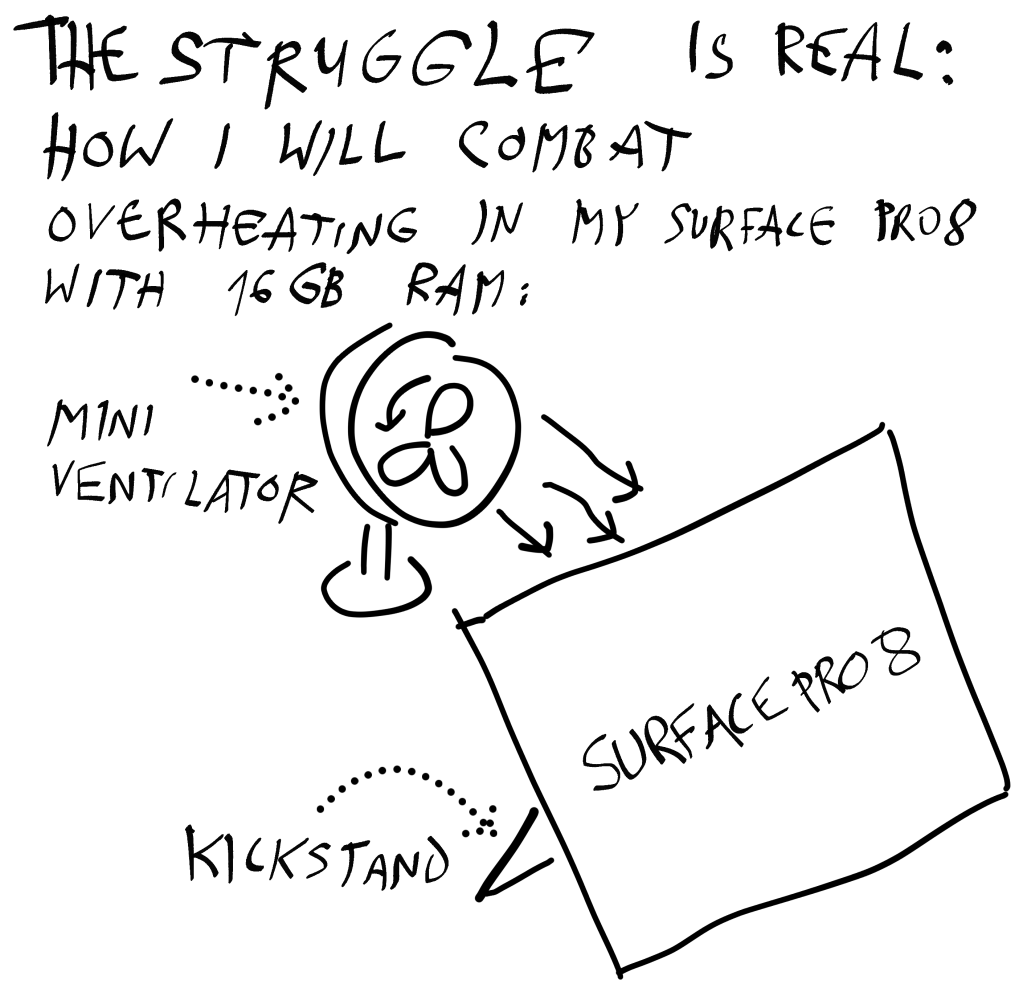 THE STRUGGLE IS REAL:
HOW I WILL COMBAT
OVERHEATING IN MY SURFACE PRO 8
WITH 16 GB RAM:
MINI
VENTILATOR
SURFACE PRO 8
KICKSTAND